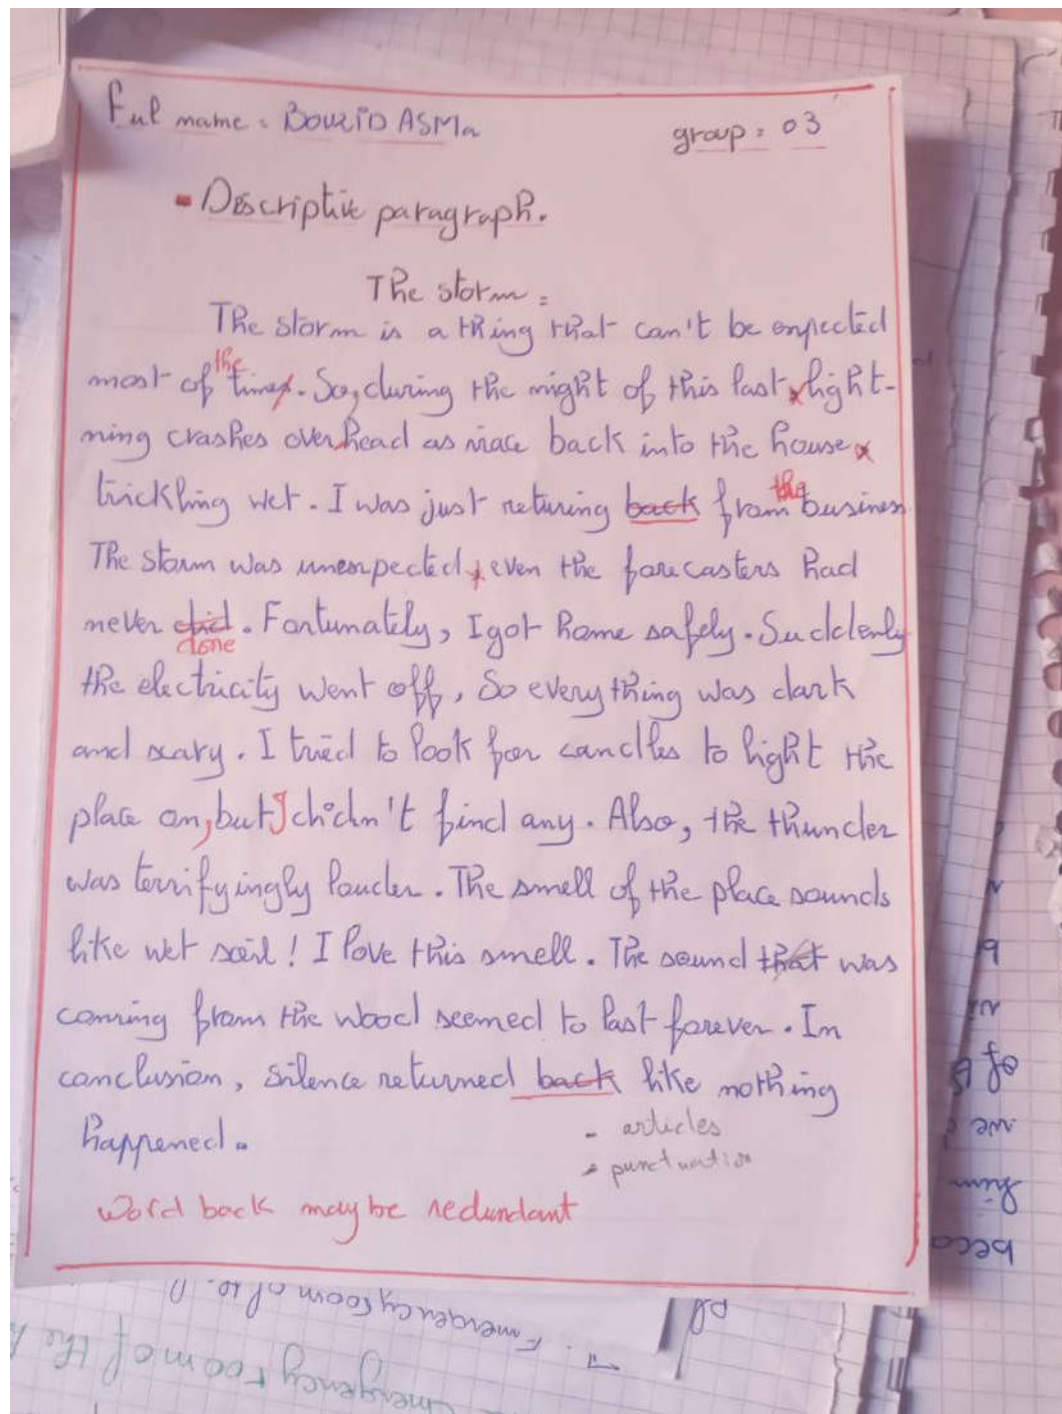 Ful name = BOURID ASMa
group = 03
- Descriptive paragraph.
The storm =
The storm is a thing that can't be enpected
most of the times. So, during the night of this last, light-
ning crashes overhead as I race back into the house
trickling wet. I was just returing back from the business
The storm was unexpected, even the forecasters had
never did done. Fortunately, I got home safely. Suddenly
the electricity went off, So everything was dark
and scary. I tried to look for candles to light the
place on, but I didn't find any. Also, the thunder
was terrifyingly louder. The smell of the place sounds
like wet soil! I love this smell. The sound that was
coming from the wood seemed to last forever. In
conclusion, silence returned back like nothing
happened.
- articles
- punctuation
Word back may be redundant
Emergency room of the